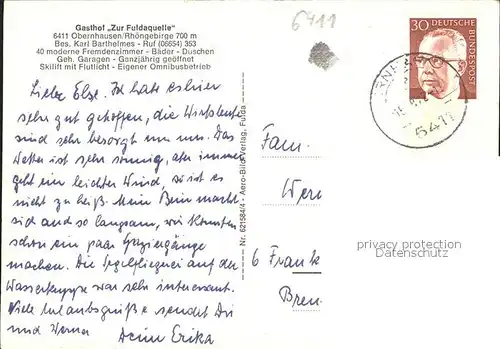 Gasthof „Zur Fuldaquelle"
6411 Obernhausen/Rhöngebirge 700 m
Bes. Karl Barthelmes - Ruf (06654) 353
40 moderne Fremdenzimmer - Bäder - Duschen
Geh. Garagen - Ganzjährig geöffnet
Skilift mit Flutlicht - Eigener Omnibusbetrieb
Liebe Else. Ich habe es hier
sehr gut getroffen, die Wirtsleute
sind sehr besorgt um uns. Das
Wetter ist sehr sonnig, aber immer
geht ein leichter Wind, so ist es
nicht zu heiß. Mein Bein macht
sich auch so langsam, wir konnten
schon ein paar Spaziergänge
machen. Die Segelfliegerei auf der
Wasserkuppe war sehr interessant.
Viele Urlaubsgrüße sendet Dir
und Werner
Deine Erika
Nr. 621584/4 - Aero-Bild-Verlag, Fulda
6411
30 DEUTSCHE
BUNDESPOST
6411
Fam.
Wern
6 Frank
Bren
privacy protection
Datenschutz